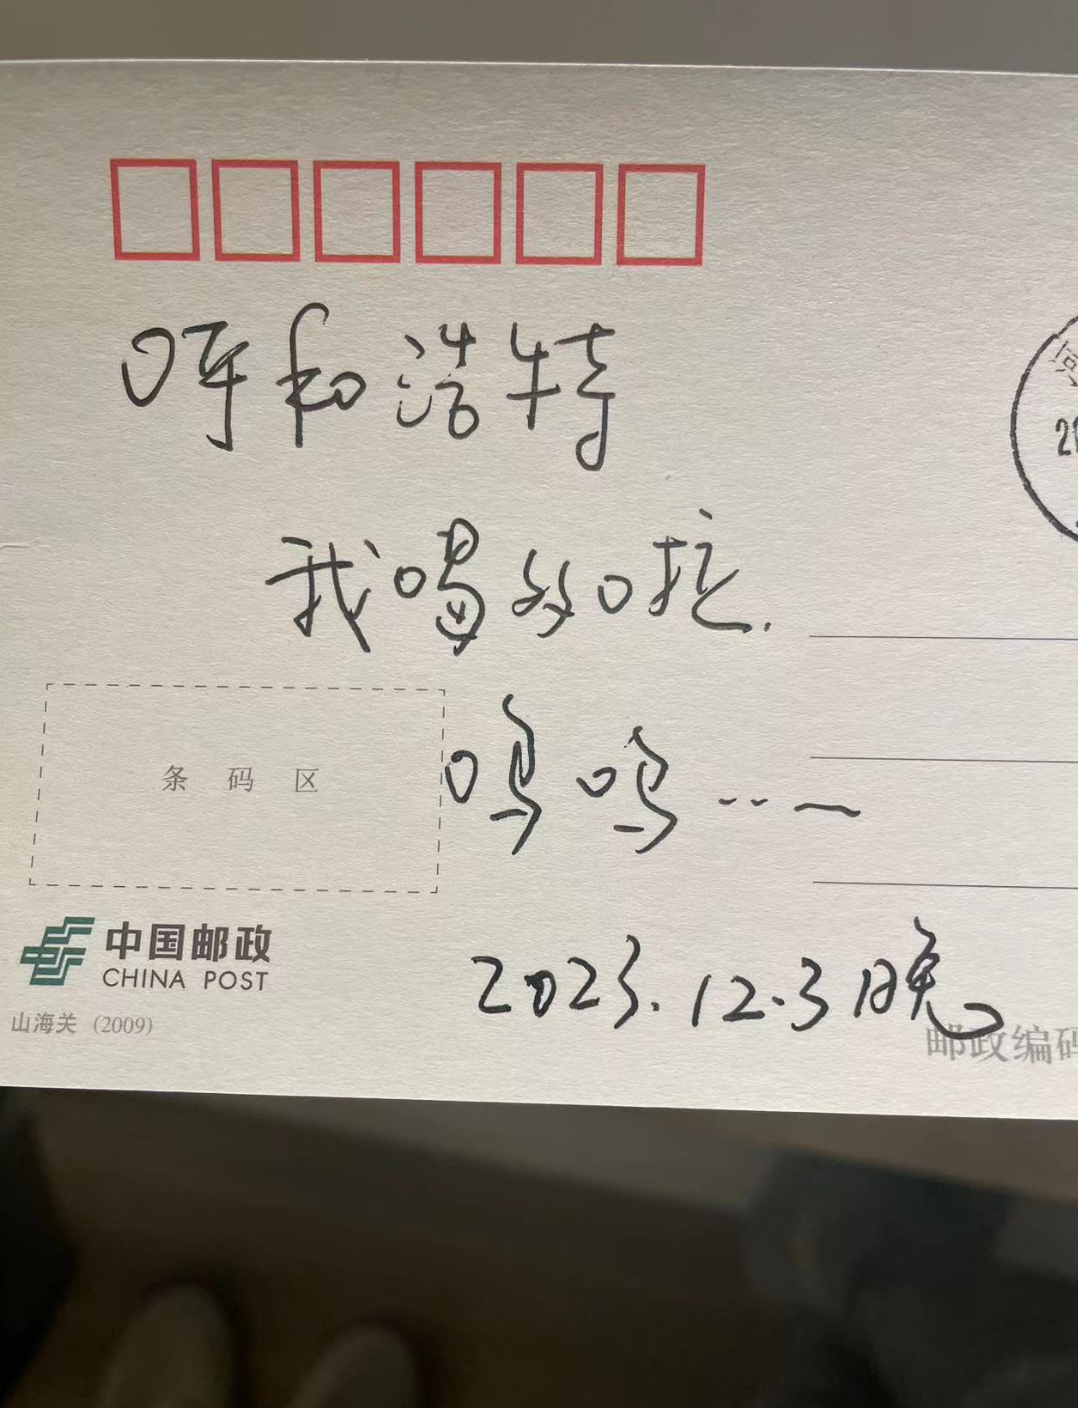 呼和浩特
我喝的啦.
条码区
呜呜……~
中国邮政
CHINA POST
2023.12.3晚
山海关 (2009)
邮政编码